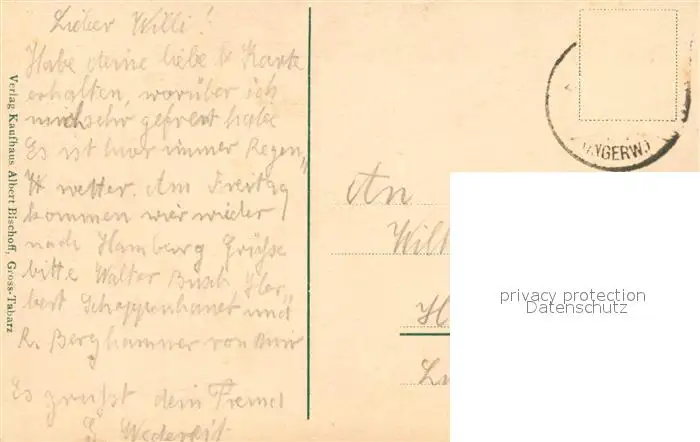 Lieber Willi!
Habe deine liebe Karte
erhalten, worüber ich
mich sehr gefreut habe
Es ist hier immer Regen„
wetter. Am Freitag
kommen wier wieder
nach Hamburg Grüße
bitte Walter Busch Her„
bert Schappenhauet und
R. Berghammer von mir
Es grüßt dein Freund
Verlag Kaufhaus Albert Bischoff, Gross-Tabarz
NGERW.)
An
privacy protection
Datenschutz